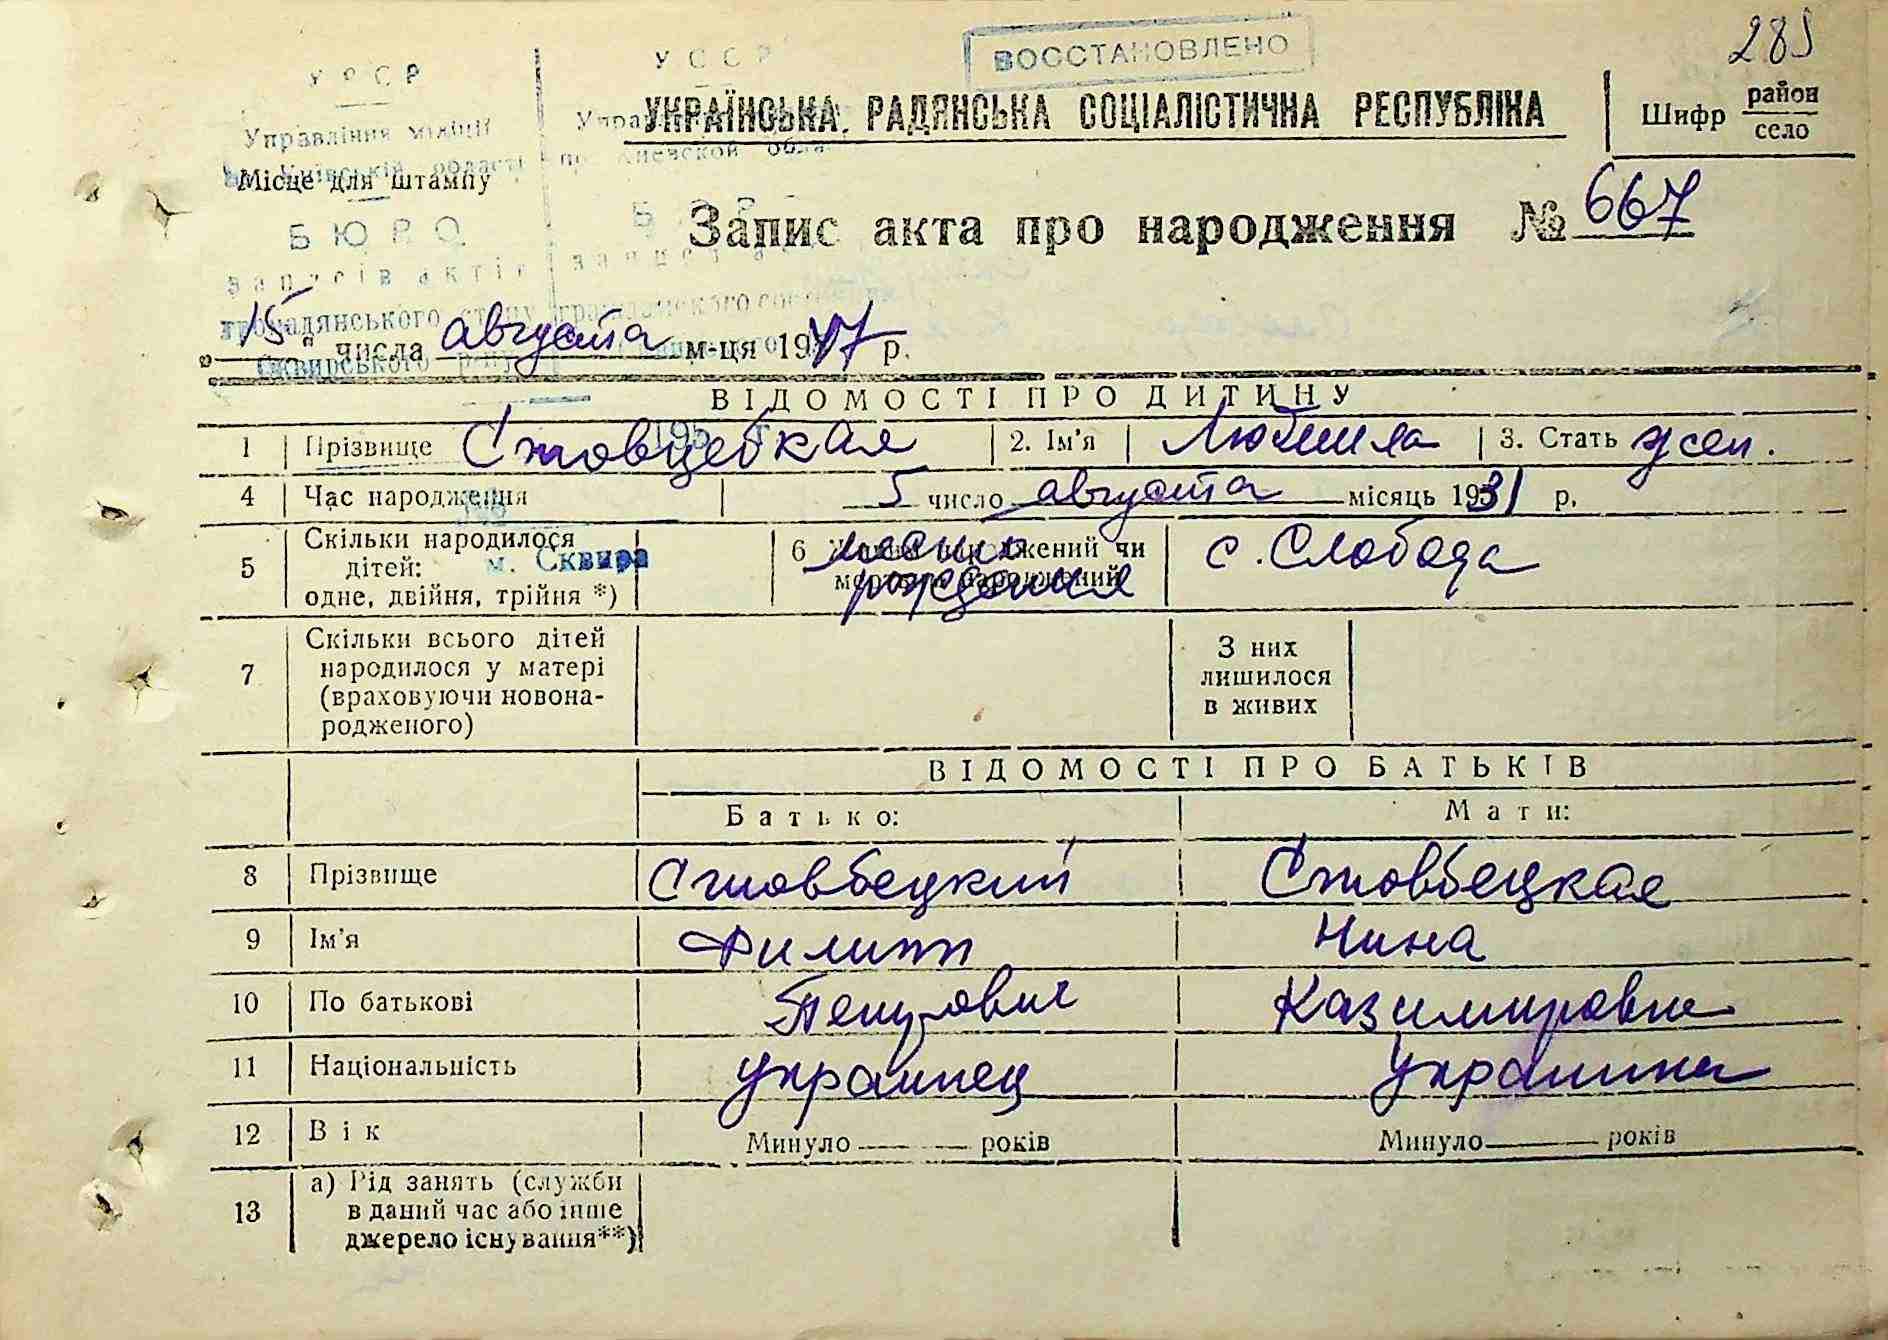 285
ВОССТАНОВЛЕНО
УРСР
УССР
УКРАЇНСЬКА РАДЯНСЬКА СОЦІАЛІСТИЧНА РЕСПУБЛІКА
Шифр район
село
Управління міліції
Київській області
Киевской
Місце для штампу
БЮРО
Запис акта про народження № 667
записів актів
громадянського стану гражданского
„15" числа августа м-ця 1947 р.
Сквирського р-ну
ВІДОМОСТІ ПРО ДИТИНУ
1 Прізвище Стовцебкая 2. Ім'я Людмила 3. Стать жен.
4 Час народження 5 число августа місяць 1931 р.
5 Скільки народилося
дітей:
одне, двійня, трійня *)
м. Сквира
6 Живим народжений чи
мертвим народжений
место
рождения
с. Слобода
7 Скільки всього дітей
народилося у матері
(враховуючи новона-
родженого)
З них
лишилося
в живих
ВІДОМОСТІ ПРО БАТЬКІВ
Батько: Мати:
8 Прізвище Стовбецкий Стовбецкая
9 Ім'я Филипп Нина
10 По батькові Петрович Казимировна
11 Національність украинец украинка
12 Вік Минуло років Минуло років
13 а) Рід занять (служби
в даний час або інше
джерело існування**)